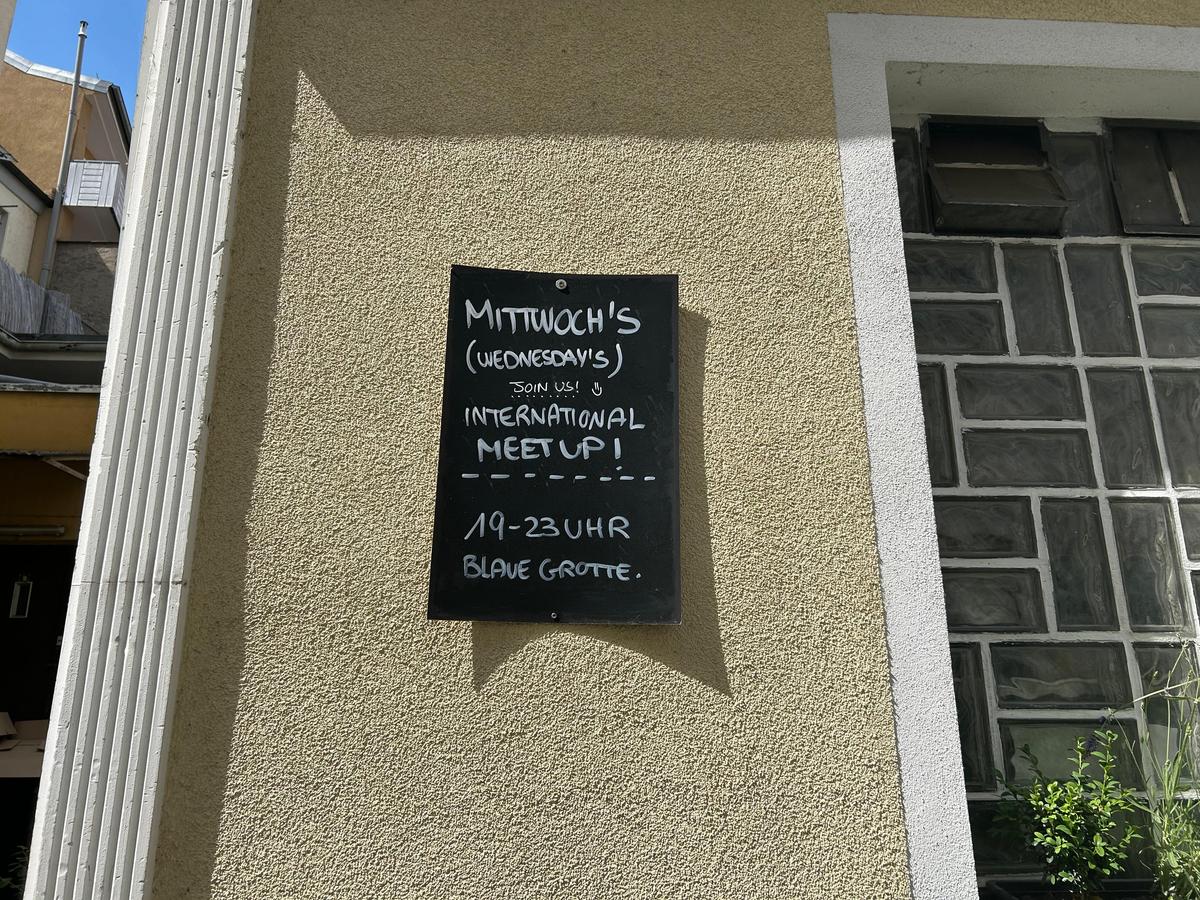 MITTWOCH'S
(WEDNESDAY'S)
JOIN US!
INTERNATIONAL
MEET UP!
19-23 UHR
BLAUE GROTTE.